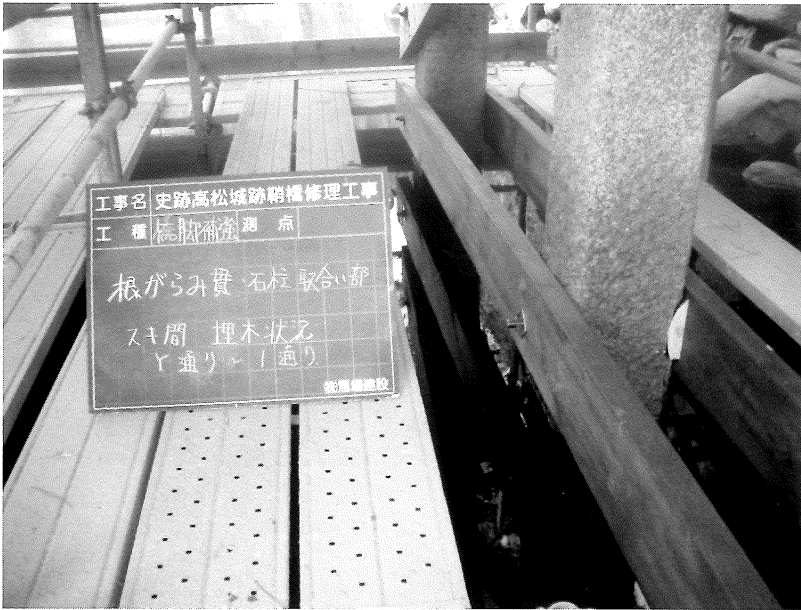 工事名 史跡高松城跡鞘橋修理工事
工種 橋脚補強 測点
根がらみ貫・石柱 取合い部
スキ間 埋木状況
Y通り〜1通り